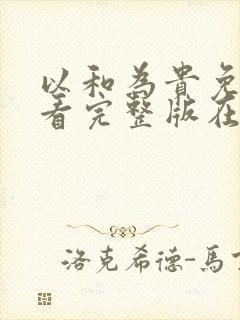 以和為貴免
看完整版在
洛克希德-馬丁